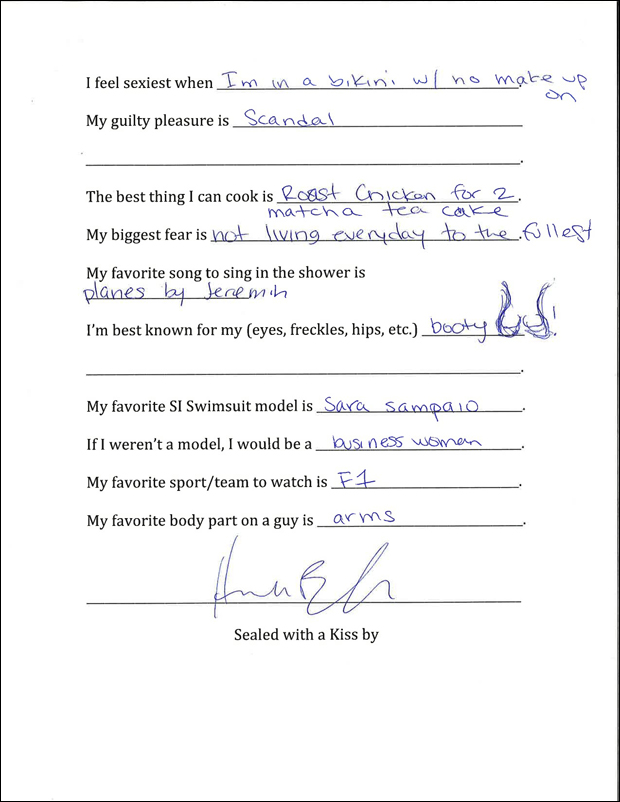 I feel sexiest when I'm in a bikini w/ no make up
on
My guilty pleasure is Scandal
The best thing I can cook is Roast Chicken for 2.
matcha tea cake
My biggest fear is not living everyday to the fullest
My favorite song to sing in the shower is
planes by Jeremih
I'm best known for my (eyes, freckles, hips, etc.) booty !
My favorite SI Swimsuit model is Sara sampaio.
If I weren't a model, I would be a business woman.
My favorite sport/team to watch is F1.
My favorite body part on a guy is arms.
Sealed with a Kiss by